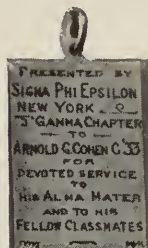 PRESENTED BY
SIGMA PHI EPSILON
NEW YORK
"J" GAMMA CHAPTER
TO
ARNOLD G. COHEN C'33
FOR
DEVOTED SERVICE
TO
HIS ALMA MATER
AND TO HIS
FELLOW CLASSMATES